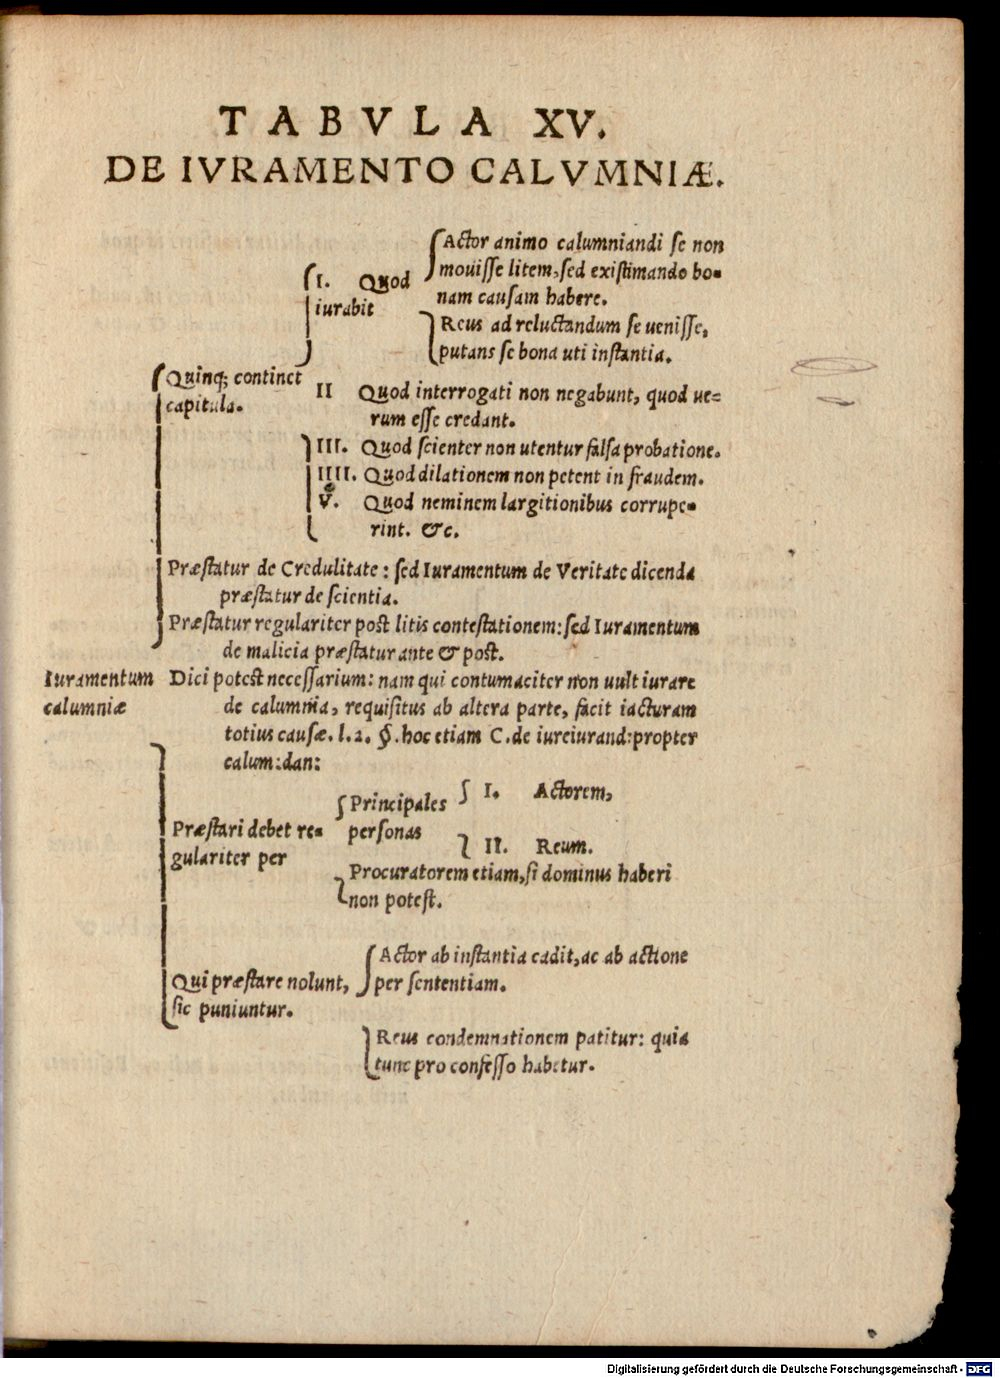 TABVLA XV.
DE IVRAMENTO CALVMNIÆ.
Actor animo calumniandi se non
mouisse litem, sed existimando bo-
nam causam habere.
I. Quod
iurabit
Reus ad reluctandum se uenisse,
putans se bona uti instantia.
Quinq; continet
capitula.
II Quod interrogati non negabunt, quod ue=
rum esse credant.
III. Quod scienter non utentur falsa probatione.
IIII. Quod dilationem non petent in fraudem.
V. Quod neminem largitionibus corrupe-
rint. &c.
Præstatur de Credulitate: sed Iuramentum de Veritate dicenda
præstatur de scientia.
Præstatur regulariter post litis contestationem: sed Iuramentum
de malicia præstatur ante & post.
Iuramentum
calumniæ
Dici potest necessarium: nam qui contumaciter non uult iurare
de calumnia, requisitus ab altera parte, facit iacturam
totius causæ. l.2. §. hoc etiam C. de iureiurand: propter
calum: dan:
Præstari debet re-
gulariter per
Principales
personas
I. Actorem,
II. Reum.
Procuratorem etiam, si dominus haberi
non potest.
Qui præstare nolunt,
sic puniuntur.
Actor ab instantia cadit, ac ab actione
per sententiam.
Reus condemnationem patitur: quia
tunc pro confesso habetur.
Digitalisierung gefördert durch die Deutsche Forschungsgemeinschaft - DFG